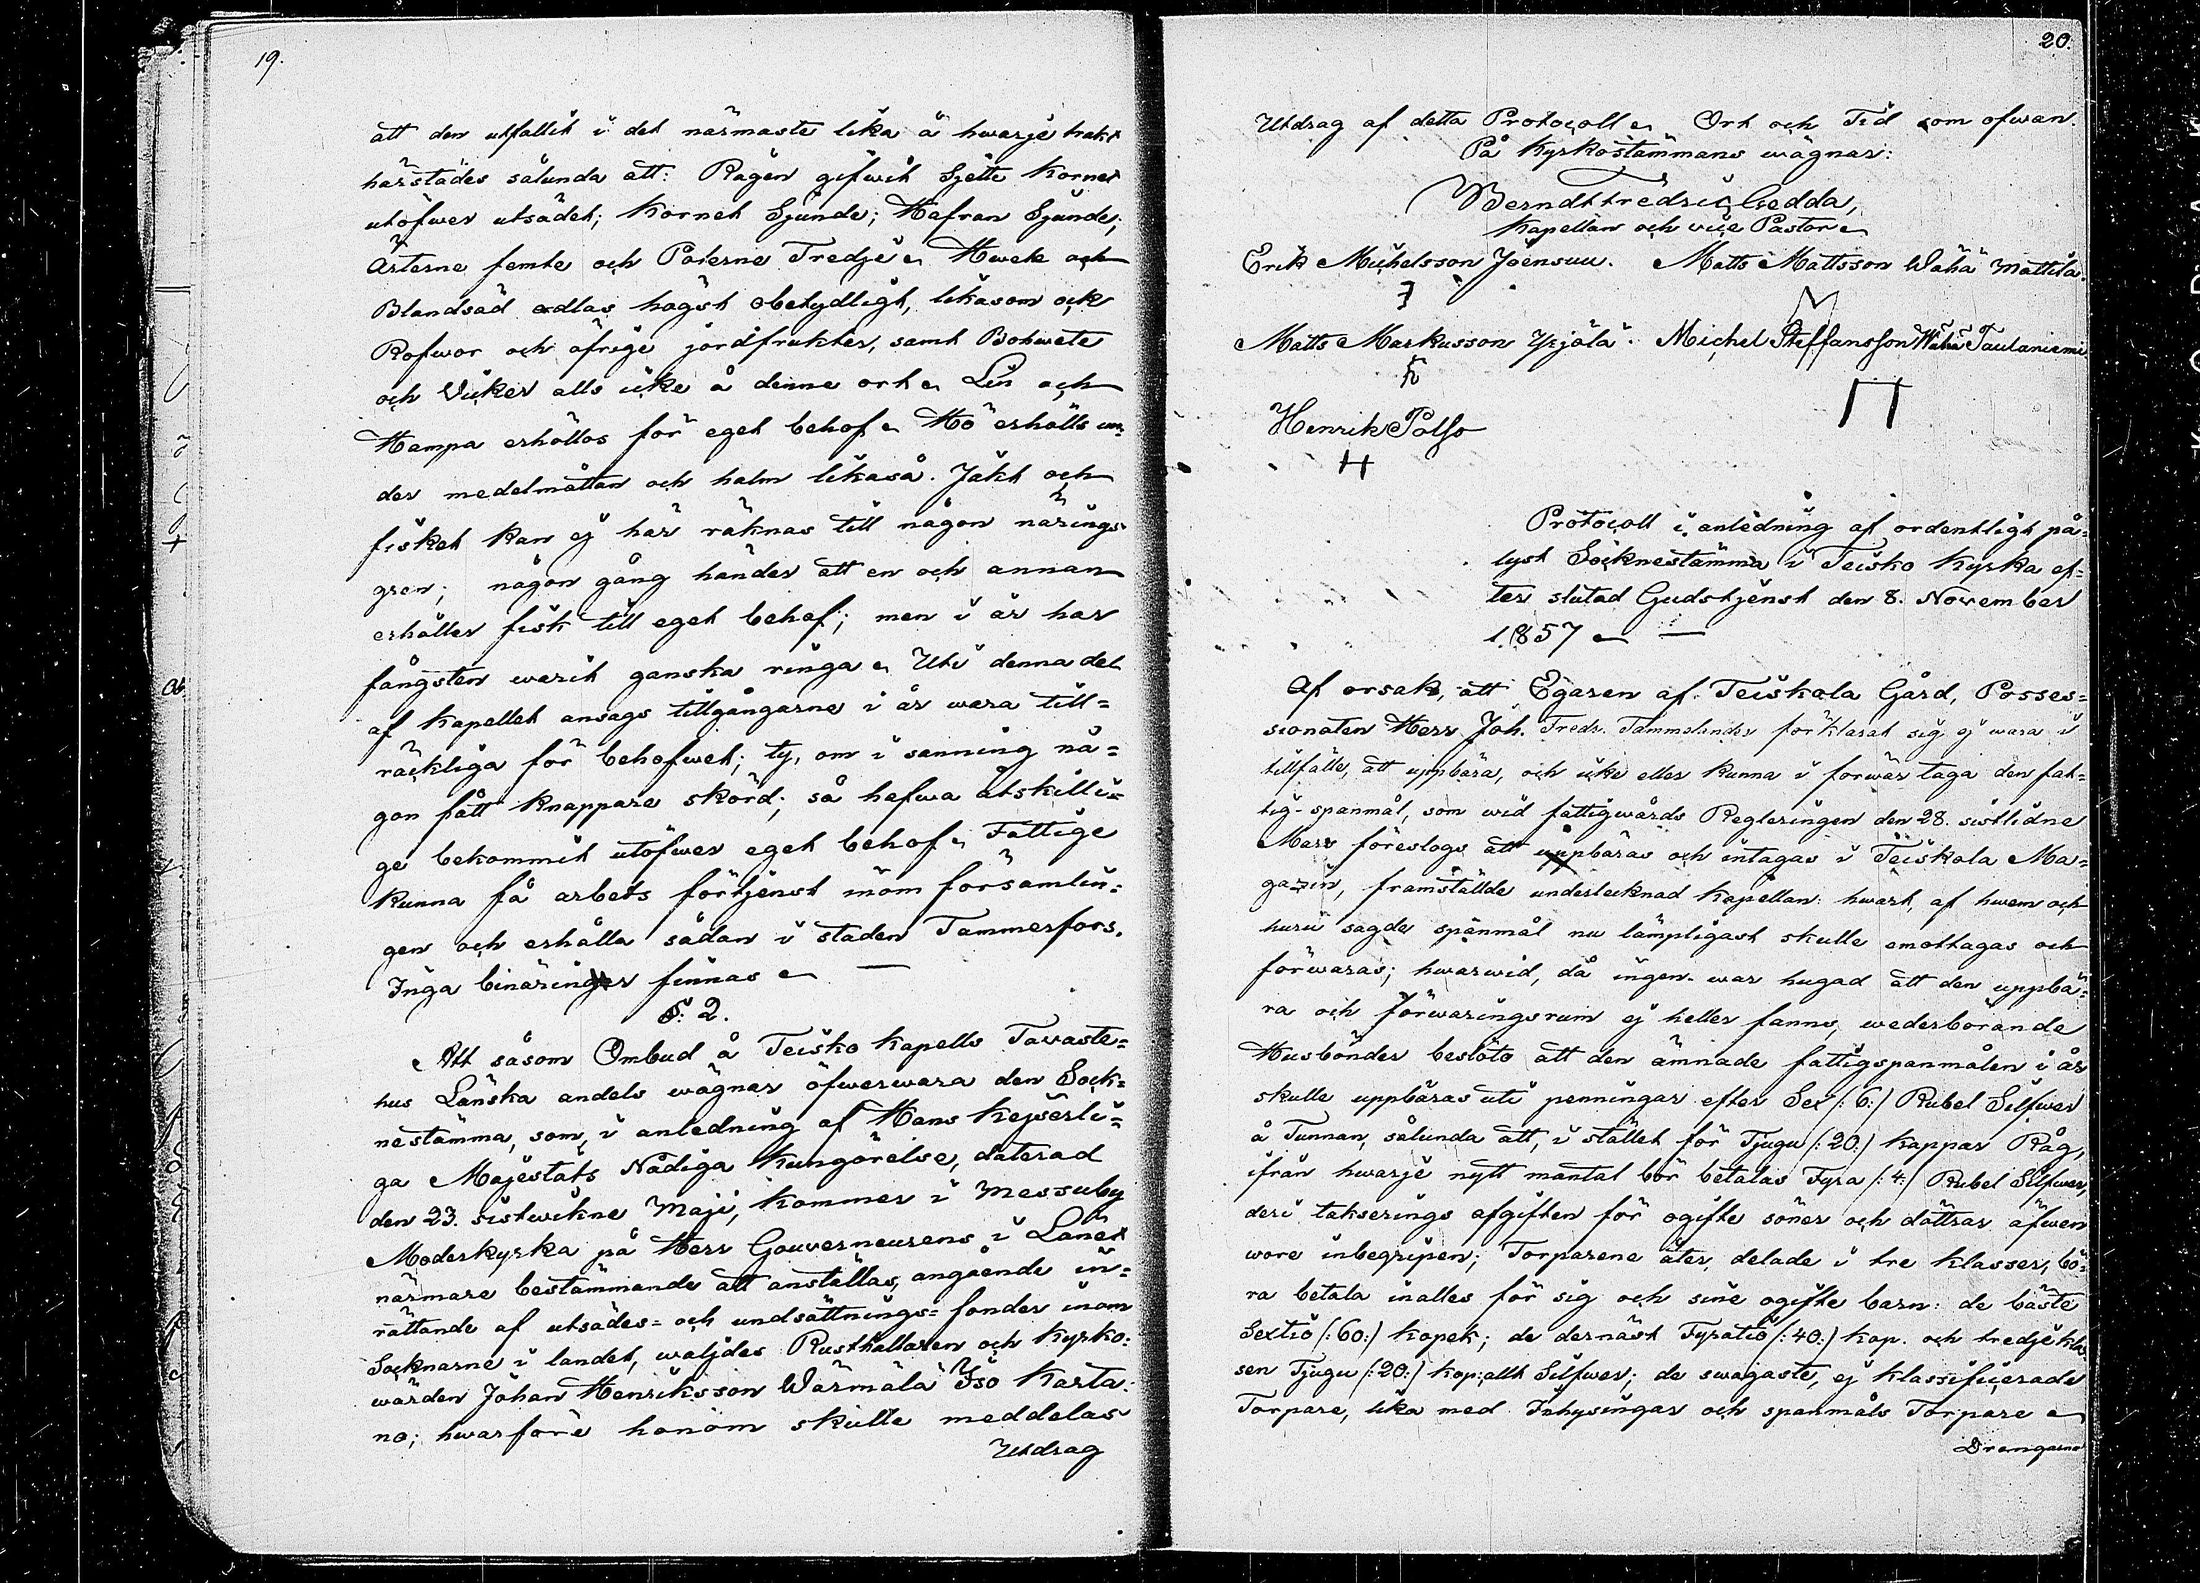 19.
att den utfallit i det närmaste lika å hwarje trakt
härstädes sålunda att: Rågen gifwit Sjette Kornet
utöfwer utsädet; Kornet Sjunde; Hafran Sjunde;
Ärterne femte och Päterne Tredje. Hwete och
Blandsäd odlas högst obetydligt, likasom ock
Rofwor och öfrige jordfrukter, samt Bohwete
och Wicker alls icke å denne ort. Lin och
Hampa erhållos för eget behof. Hö erhölls un-
der medelmåttan och halm likaså. Jakt och
fisket kan ej här räknas till någon närings
gren; någon gång händer att en och annan
erhåller fisk till eget behof; men i år har
fångsten warit ganska ringa. Uti denna del
af Kapellet ansågs tillgångarne i år wara till=
räckliga för behofwet; ty, om i sanning nå=
gon fått knappare skörd; så hafwa åtskilli=
ge bekommit utöfwer eget behof. Fattige
kunna få arbets förtjenst inom församlin=
gen och erhålla sådan i staden Tammerfors.
Inga binäringar finnas. —
§. 2.
Att såsom Ombud å Teisko Kapells Tavaste=
hus Länska andels wägnar öfwerwara den Sock=
nestämma, som, i anledning af Hans Kejserli=
ga Majestäts Nådiga Kungörelse, daterad
den 23. sistwikne Maji, kommer i Messuby
Moderkyrka på Herr Gouverneurens i Länet
närmare bestämmande att anställas, angående in=
rättande af utsädes= och undsättnings= fonder inom
Socknarne i landet, waljdes Rusthållaren och Kyrko=
wärden Johan Henriksson Wärmälä Iso Karta=
no; hwarföre honom skulle meddelas
Utdrag
20.
Utdrag af detta Protocoll. Ort och Tid som ofwan.
På Kyrkostämmans wägnar:
Berndt Fredric Gedda,
Kapellan och vice Pastor.
Erik Michelsson Joensuu. Matts Mattsson Wähä Mattila.
Matts Markusson Yrjölä. Michel Steffansson Wähä Taulaniemi
H
Henrik Polso
H
Protocoll i anledning af ordentligt på=
lyst Socknestämma i Teisko Kyrka ef=
ter slutad Gudstjenst den 8. November
1857. —
Af orsak, att Egaren af Teiskola Gård, Posses=
sionaten Herr Joh. Fredr. Tammelander förklarat sig ej wara i
tillfälle, att uppbära, och icke eller kunna i förwar taga den fat=
tig-spanmål, som wid fattigwårds Regleringen den 28. sistlidne
Mars föreslogs att uppbäras och intagas i Teiskola Ma=
gazin, framställde undertecknad Kapellan: hwart, af hwem och
huru sagde spanmål nu lämpligast skulle emottagas och
förwaras; hwarwid, då ingen war hugad att den uppbä=
ra och förwaringsrum ej heller fanns, wederbörande
Husbönder beslöto att den ämnade fattigspanmålen i år
skulle uppbäras uti penningar efter Sex (:6:) Rubel Silfwer
å Tunnan, sålunda att, i stället för Tjugu (:20:) kappar Råg,
ifrån hwarje nytt mantal bör betalas Fyra (:4:) Rubel Silfwer,
deri takserings afgiften för ogifte söner och döttrar äfwen
wore inbegripen; Torparene åter, delade i tre klasser, bö=
ra betala inalles för sig och sine ogifte barn: de bäste
Sextio (:60:) kopek; de dernäst Fyratio (:40:) kop. och tredje klas
sen Tjugu (:20:) kop: allt Silfwer; de swagaste, ej klassificerade
Torpare, lika med Inhysingar och spanmåls Torpare
Drengarne